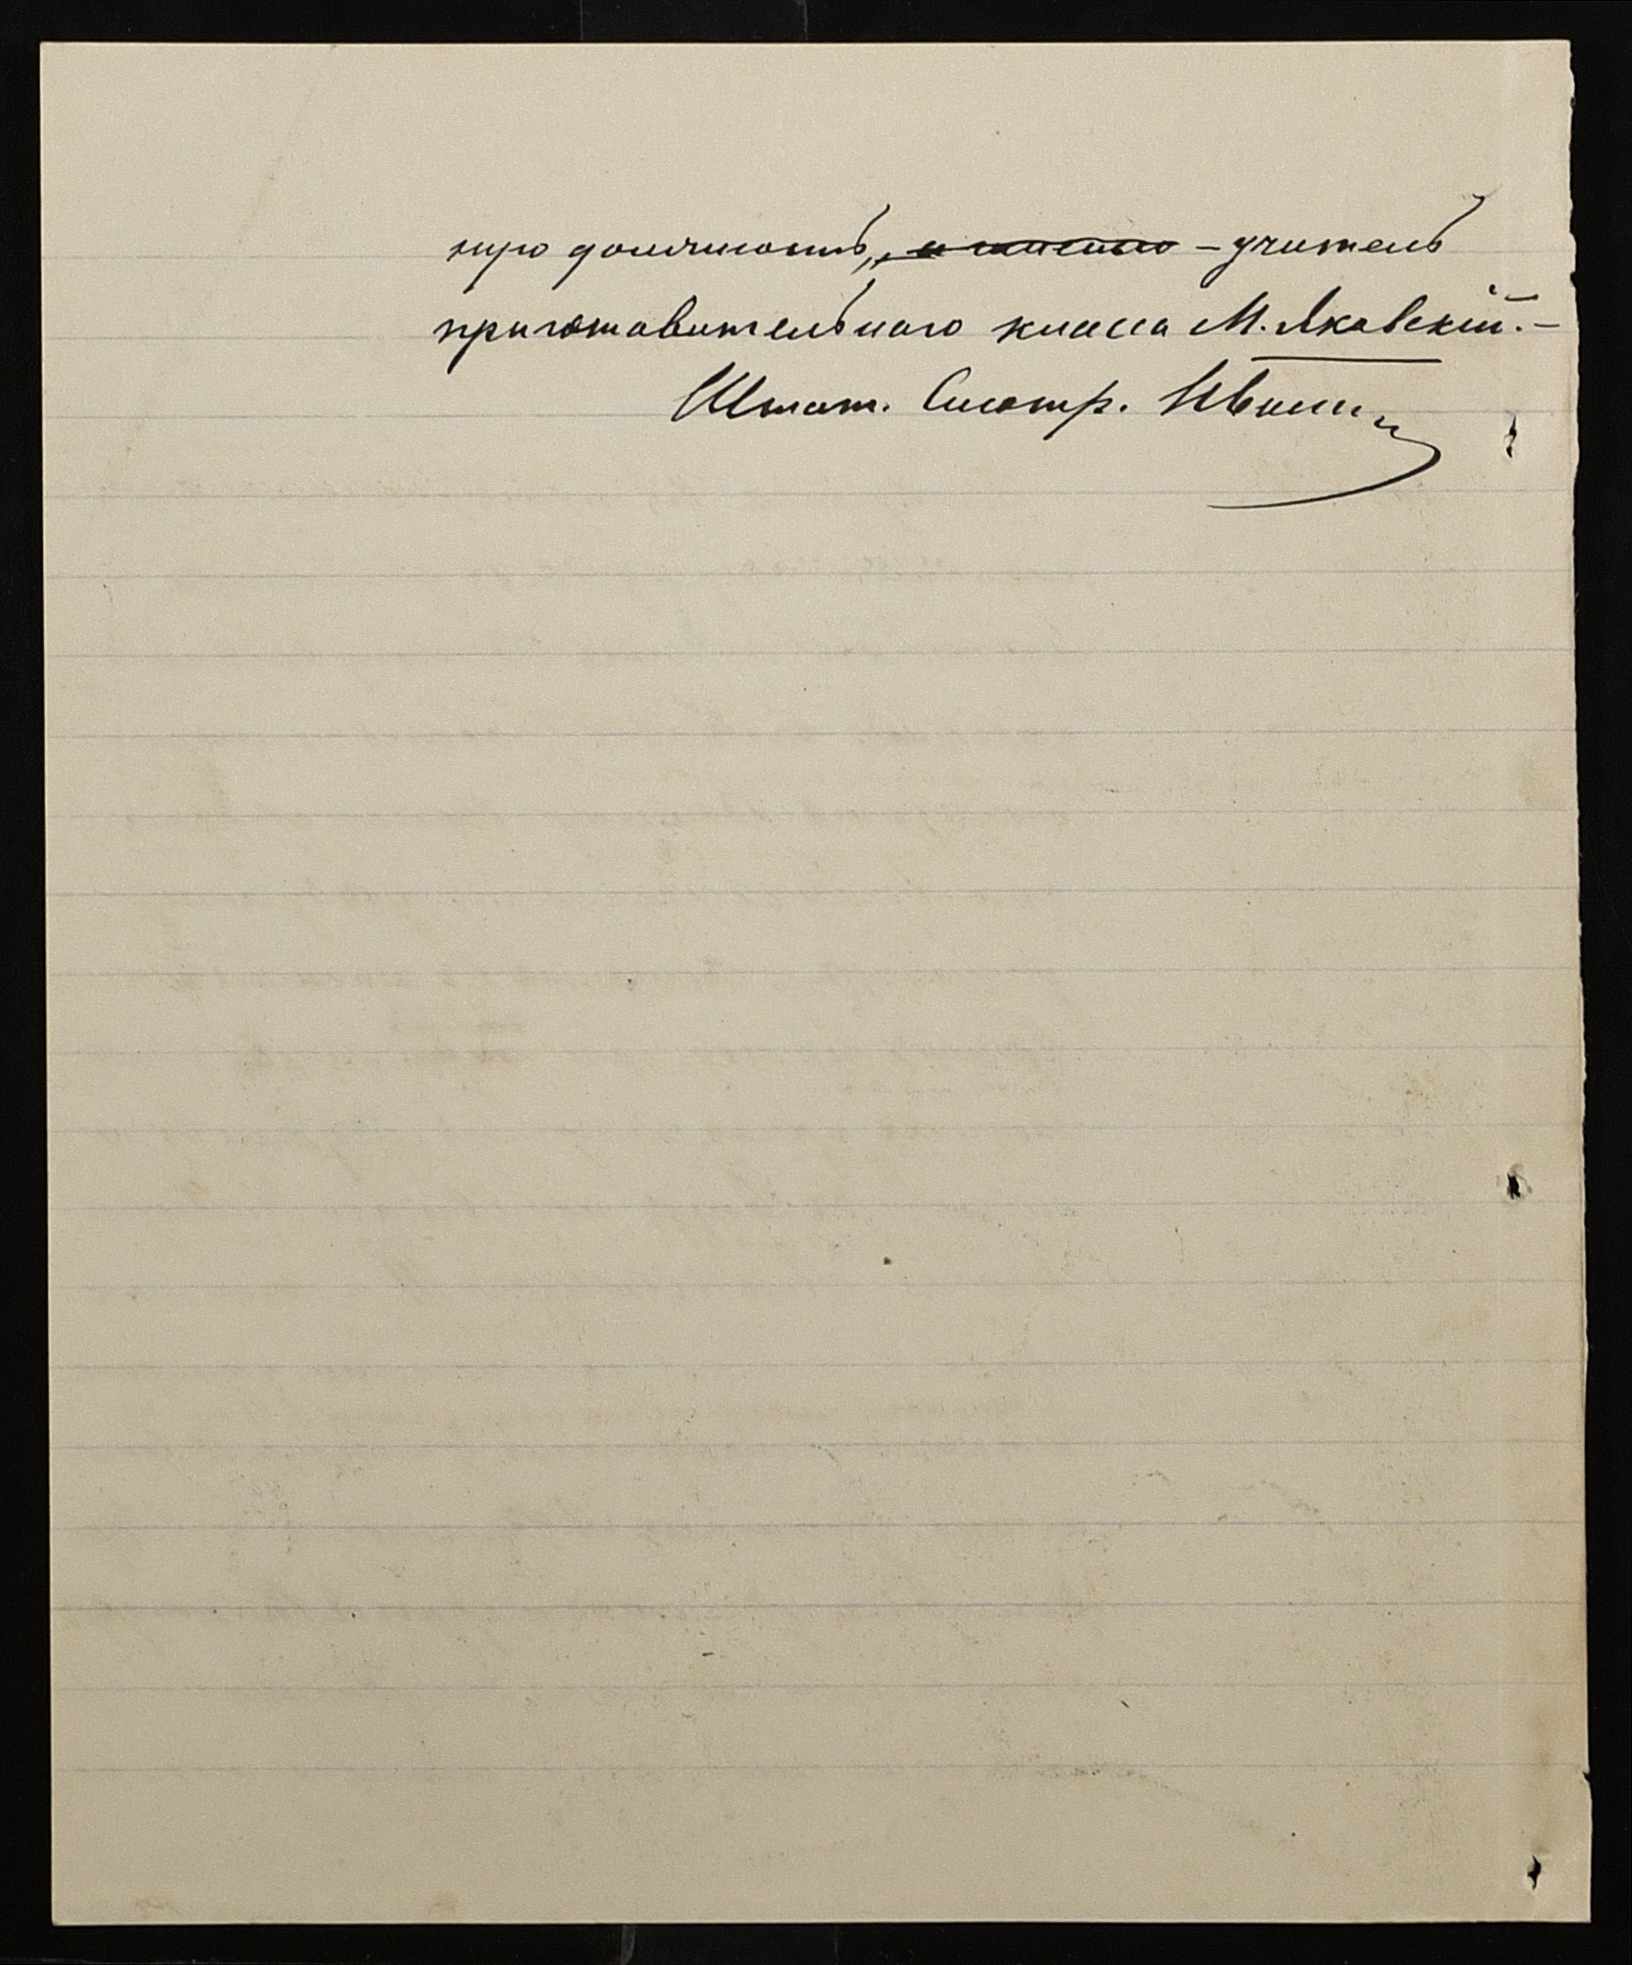 нюю должность, ~~а именно~~ – учитель
приготовительнаго класса М. Яковскій. –
Штат. Смотр. Ивашин